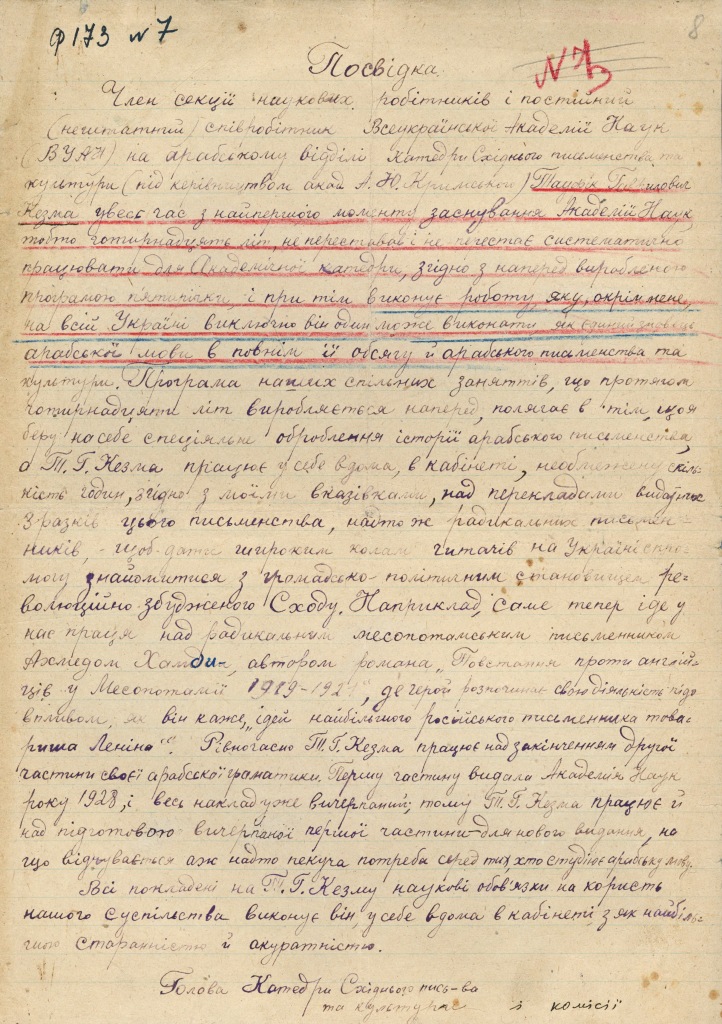 Ф 173 № 7
8
№ 3
Посвідка.
Член секції наукових робітників і постійний
(нештатний) співробітник Всеукраїнської Академії Наук
(ВУАН) на арабському відділі Катедри Східнього письменства та
культури (під керівництвом акад. А. Ю. Кримського) Тауфік Гаврилович
Кезма увесь час з найпершого моменту заснування Академії Наук,
тобто чотирнадцять літ, не переставав і не перестає систематично
працювати для Академічної катедри, згідно з наперед виробленою
програмою п'ятирічки і при тім виконує роботу, яку, окрім мене,
на всій Україні виключно він один може виконати як єдиний знавець
арабської мови в повнім її обсягу й арабського письменства та
культури. Програма наших спільних заняттів, що протягом
чотирнадцяти літ виробляється наперед, полягає в тім, що я
беру на себе спеціяльне оброблення історії арабського письменства,
а Т. Г. Кезма працює у себе вдома, в кабінеті, необмежену скіль-
кість годин, згідно з моїми вказівками, над перекладами видатних
зразків цього письменства, надто ж радикальних письмен-
ників, щоб дати широким колам читачів на Україні спро-
могу знайомитися з громадсько-політичним становищем ре-
волюційно збудженого Сходу. Наприклад, саме тепер іде у
нас праця над радикальним месопотамським письменником
Ахмедом Хамди, автором романа „Повстання проти англій-
ців у Месопотамії 1919-1921", де герой розпочинає свою діяльність підо
впливом, як він каже, „ідей найбільшого російського письменника това-
риша Леніна". Рівночасно Т. Г. Кезма працює над закінченням другої
частини своєї арабської граматики. Першу частину видала Академія Наук
року 1928, і весь наклад уже вичерпаний; тому Т. Г. Кезма працює й
над підготовою вичерпаної першої частини для нового видання, на
що відчувається аж надто пекуча потреба серед тих хто студіює арабську мову.
Всі покладені на Т. Г. Кезму наукові обов'язки на користь
нашого суспільства виконує він у себе вдома в кабінеті з як найбіль-
шою старанністю й акуратністю.
Голова Катедри Східнього пись-ва
та культури і комісії